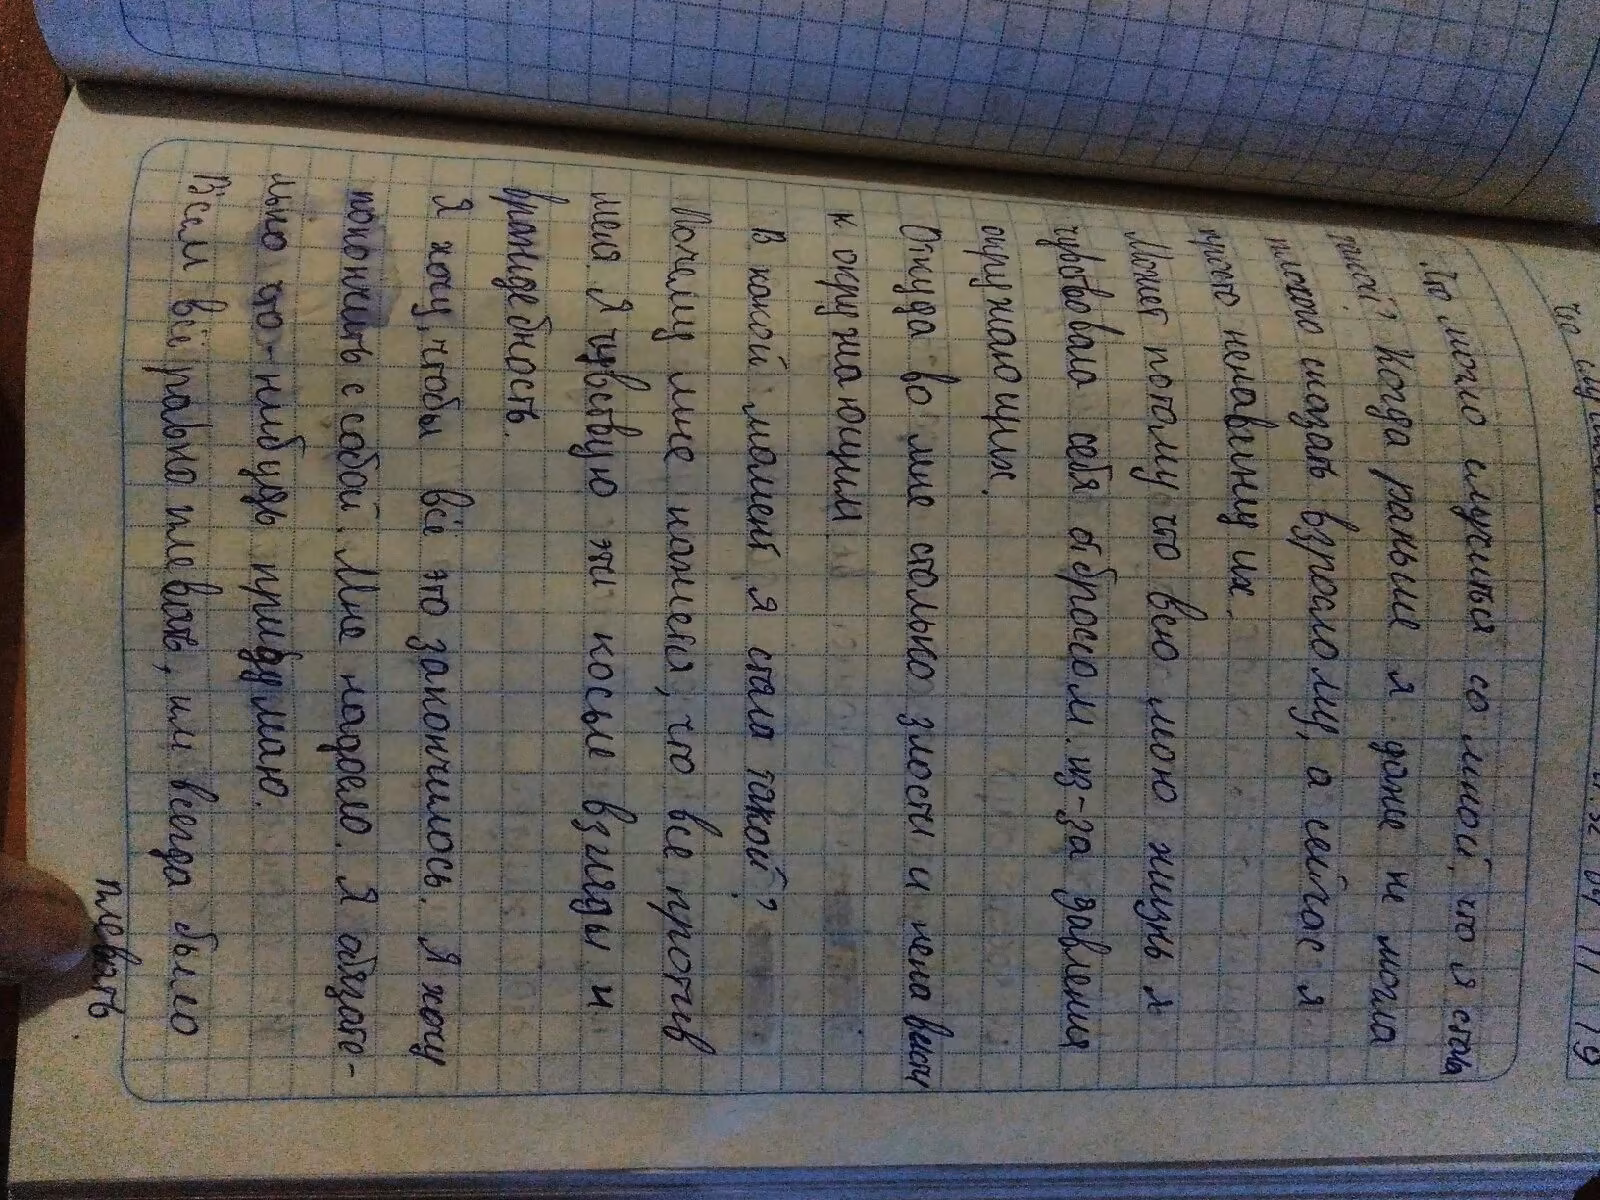 Что могло случиться со мной, что я стала
такой? Когда раньше я даже не могла
плохо сказать взрослому, а сейчас я
просто ненавижу их.
Может потому что всю мою жизнь я
чувствовала себя отбросом из-за давления
окружающих.
Откуда во мне столько злости и ненависти
к окружающим
В какой момент я стала такой?
Почему мне кажется, что все против
меня. Я чувствую эти косые взгляды и
враждебность.
Я хочу, чтобы всё это закончилось. Я хочу
покончить с собой. Мне надоело. Я обязате-
льно что-нибудь придумаю.
Всем всё равно плевать, им всегда было
плевать